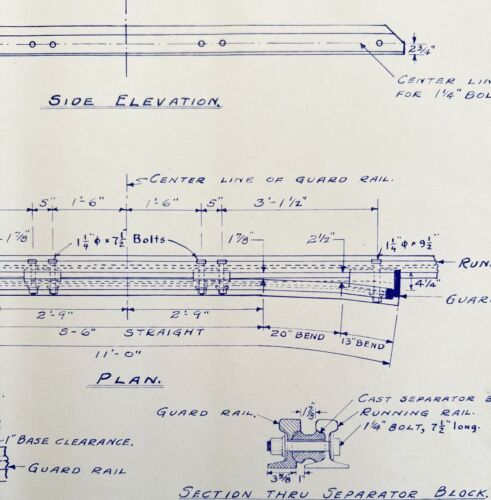 2 3/4"
CENTER LIN
FOR 1 1/4" BOL
SIDE ELEVATION.
CENTER LINE OF GUARD RAIL.
5" 1'-6" 1'-6" 5" 3'-1 1/2"
1 7/8" 1 1/4" φ × 7 1/2" Bolts 1 7/8" 2 1/2" 1 1/4" φ × 9 1/2"
RUNN
4 1/4"
GUARD
2'-9" 2'-9"
5'-6" STRAIGHT 20" BEND 13" BEND
11'-0"
PLAN.
1 7/8" CAST SEPARATOR B
GUARD RAIL. RUNNING RAIL.
1 1/4" BOLT, 7 1/2" long.
1" BASE CLEARANCE.
GUARD RAIL 3 5/8" 1"
SECTION THRU SEPARATOR BLOCK